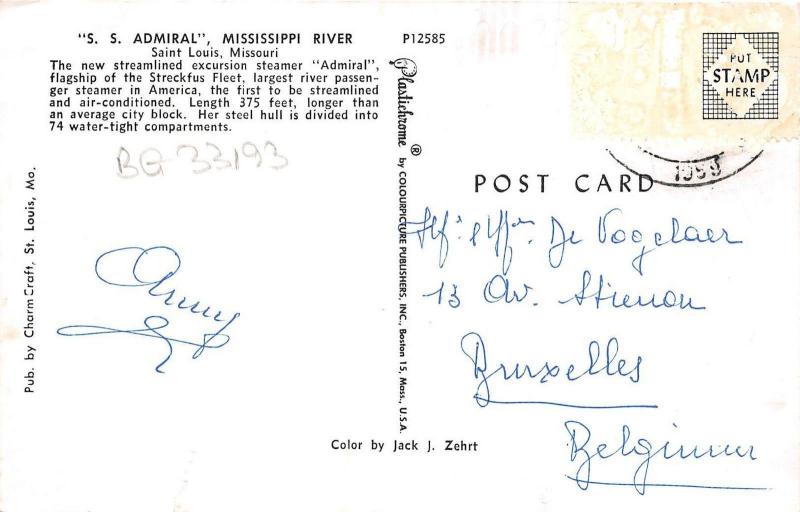 "S. S. ADMIRAL", MISSISSIPPI RIVER
Saint Louis, Missouri
The new streamlined excursion steamer "Admiral",
flagship of the Streckfus Fleet, largest river passen-
ger steamer in America, the first to be streamlined
and air-conditioned. Length 375 feet, longer than
an average city block. Her steel hull is divided into
74 water-tight compartments.
BG 33193
Pub. by Charm Craft, St. Louis, Mo.
Anny
P12585
Plastichrome ® by COLOURPICTURE PUBLISHERS, INC., Boston 15, Mass., U.S.A.
Color by Jack J. Zehrt
PUT
STAMP
HERE
POST CARD
De Vogelaer
13 Av. Stienon
Bruxelles
Belgium